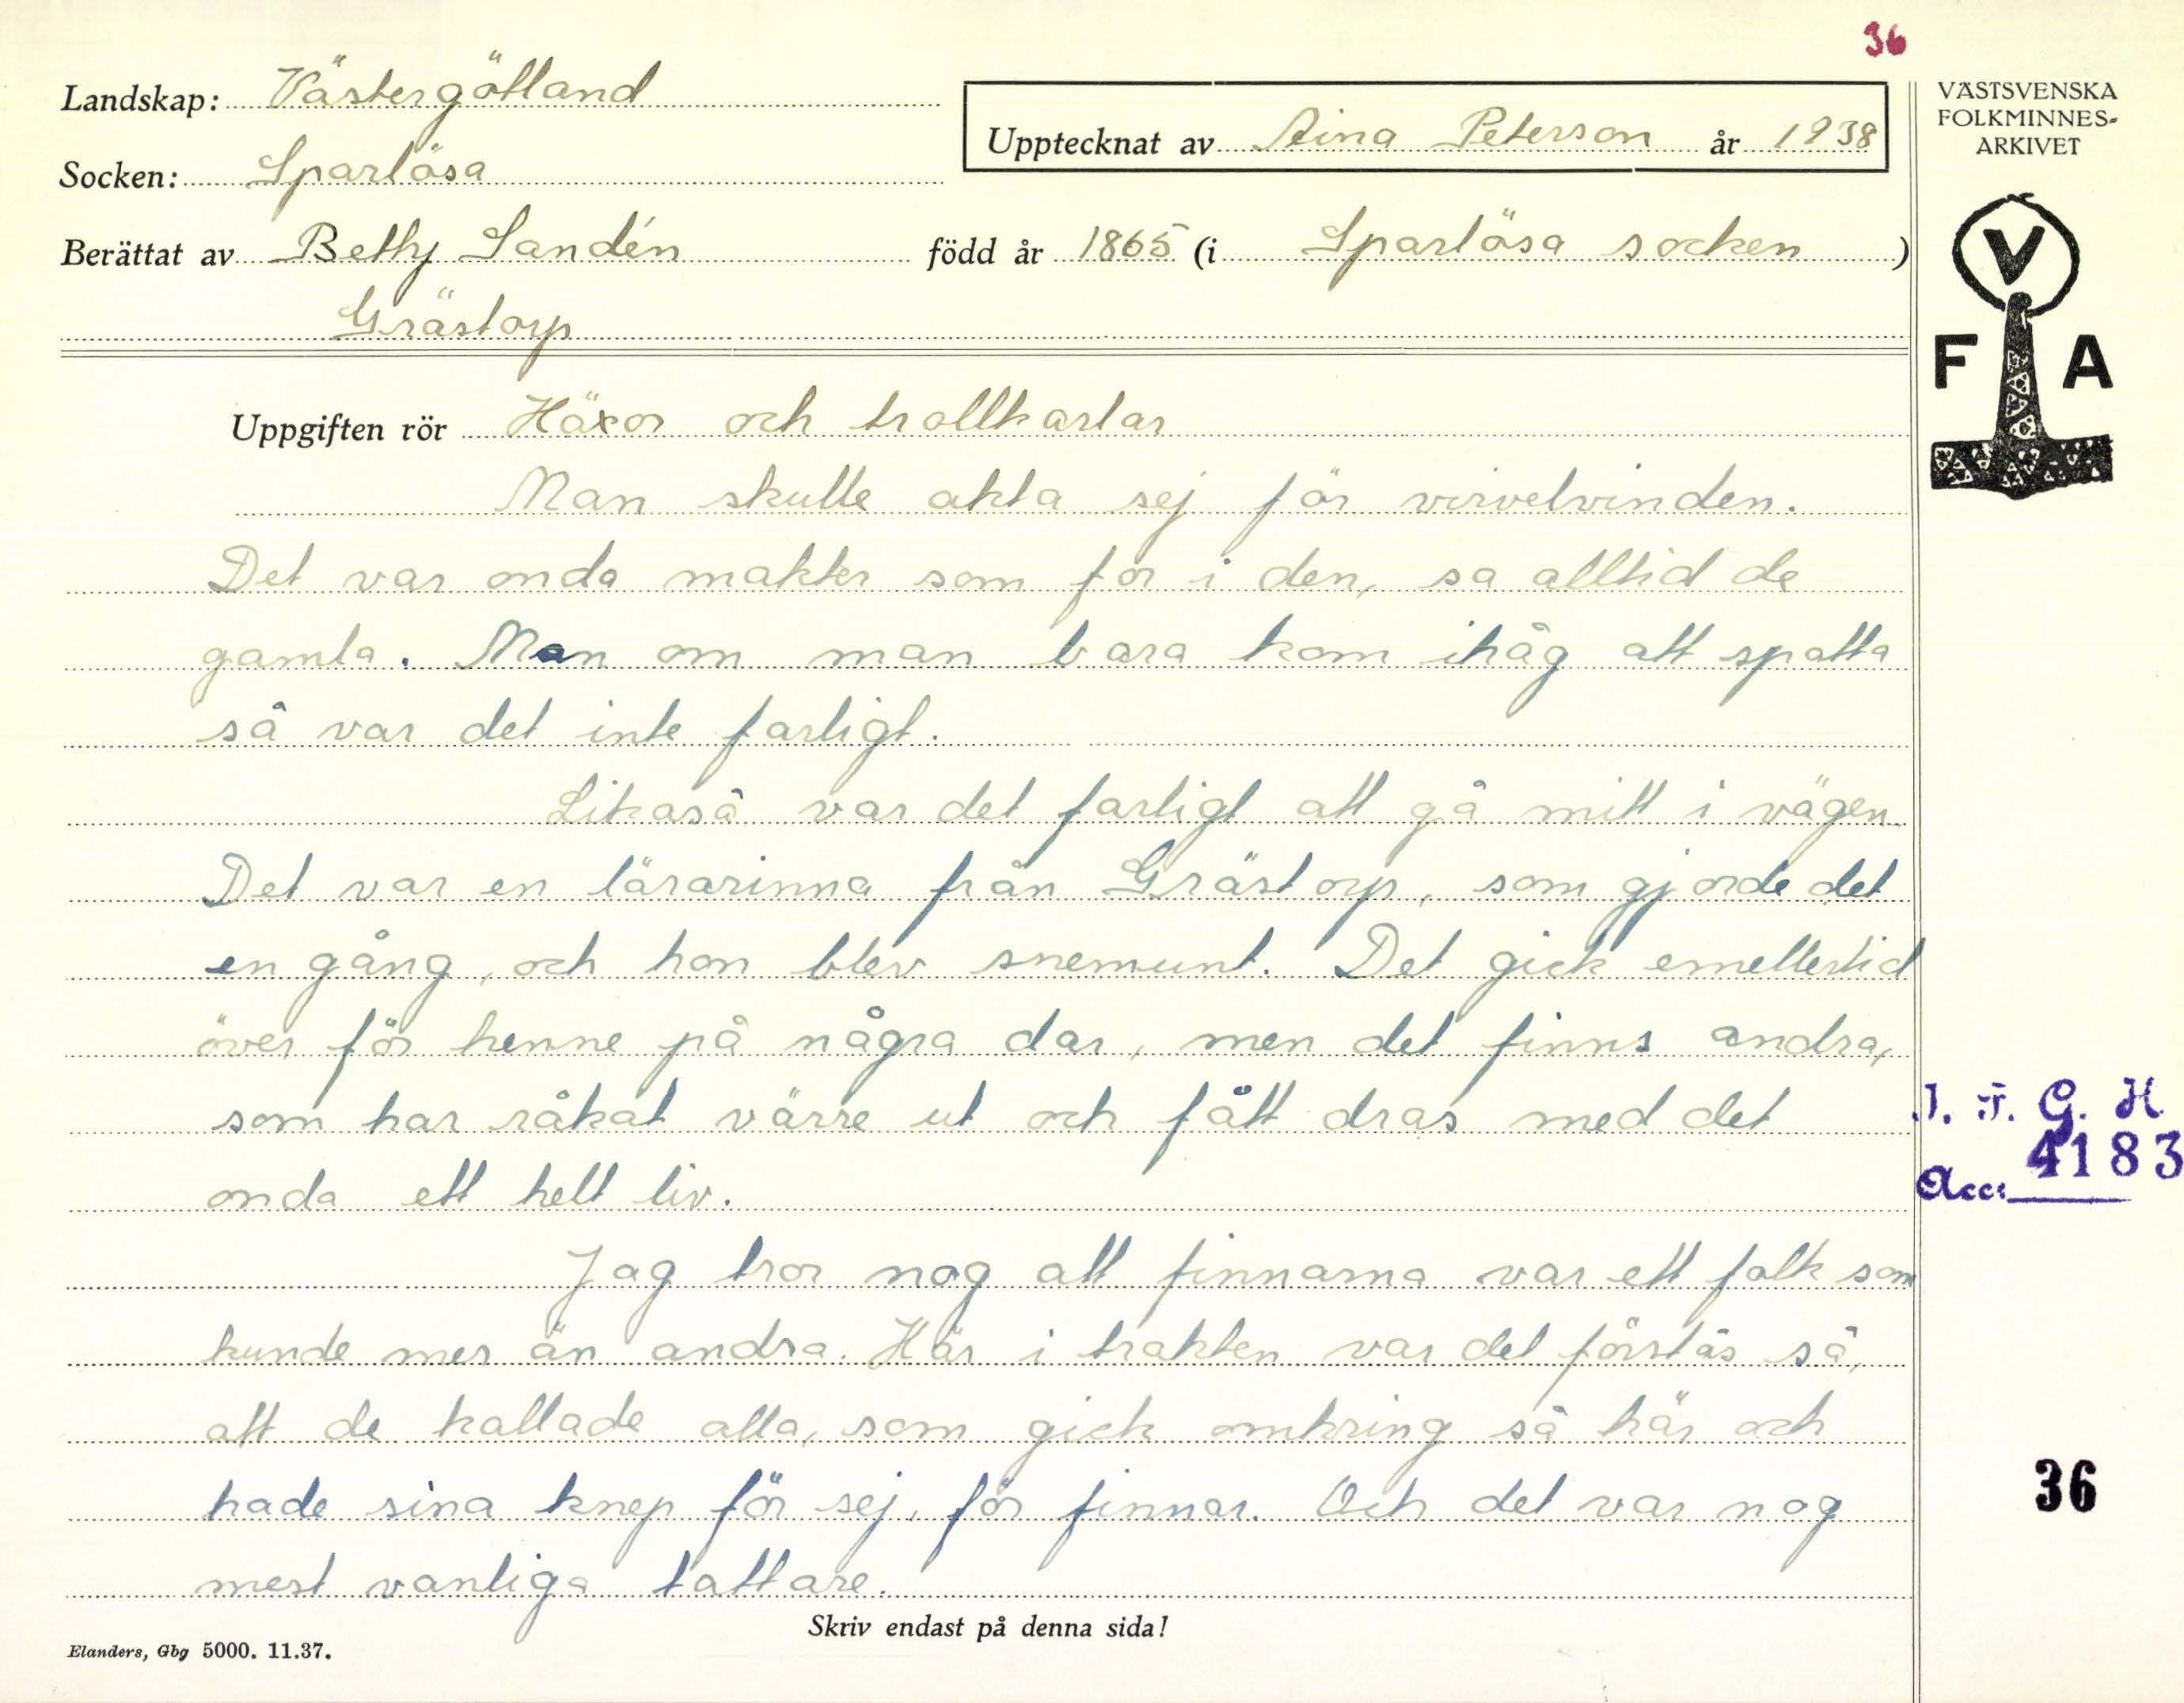 36
Landskap: Västergötland
Upptecknat av Aina Peterson år 1938
Socken: Sparlösa
Berättat av Betty Sandén född år 1865 (i Sparlösa socken)
Grästorp
VÄSTSVENSKA
FOLKMINNES-
ARKIVET
V
F A
Uppgiften rör Häxor och trollkarlar
Man skulle akta sej för virvelvinden.
Det var onda makter som for i den, sa alltid de
gamla. Men om man bara kom ihåg att spotta
så var det inte farligt.
Likaså var det farligt att gå mitt i vägen.
Det var en lärarinna från Grästorp, som gjorde det
en gång, och hon blev snemunt. Det gick emellertid
över för henne på några dar, men det finns andra,
som har råkat värre ut och fått dras med det
onda ett helt liv.
Jag tror nog att finnarna var ett folk som
kunde mer än andra. Här i trakten var det förstås så,
att de kallade alla, som gick omkring så här och
hade sina knep för sej, för finnar. Och det var nog
mest vanliga tattare.
I. F. G. H
Acc. 4183
36
Skriv endast på denna sida!
Elanders, Gbg 5000. 11.37.